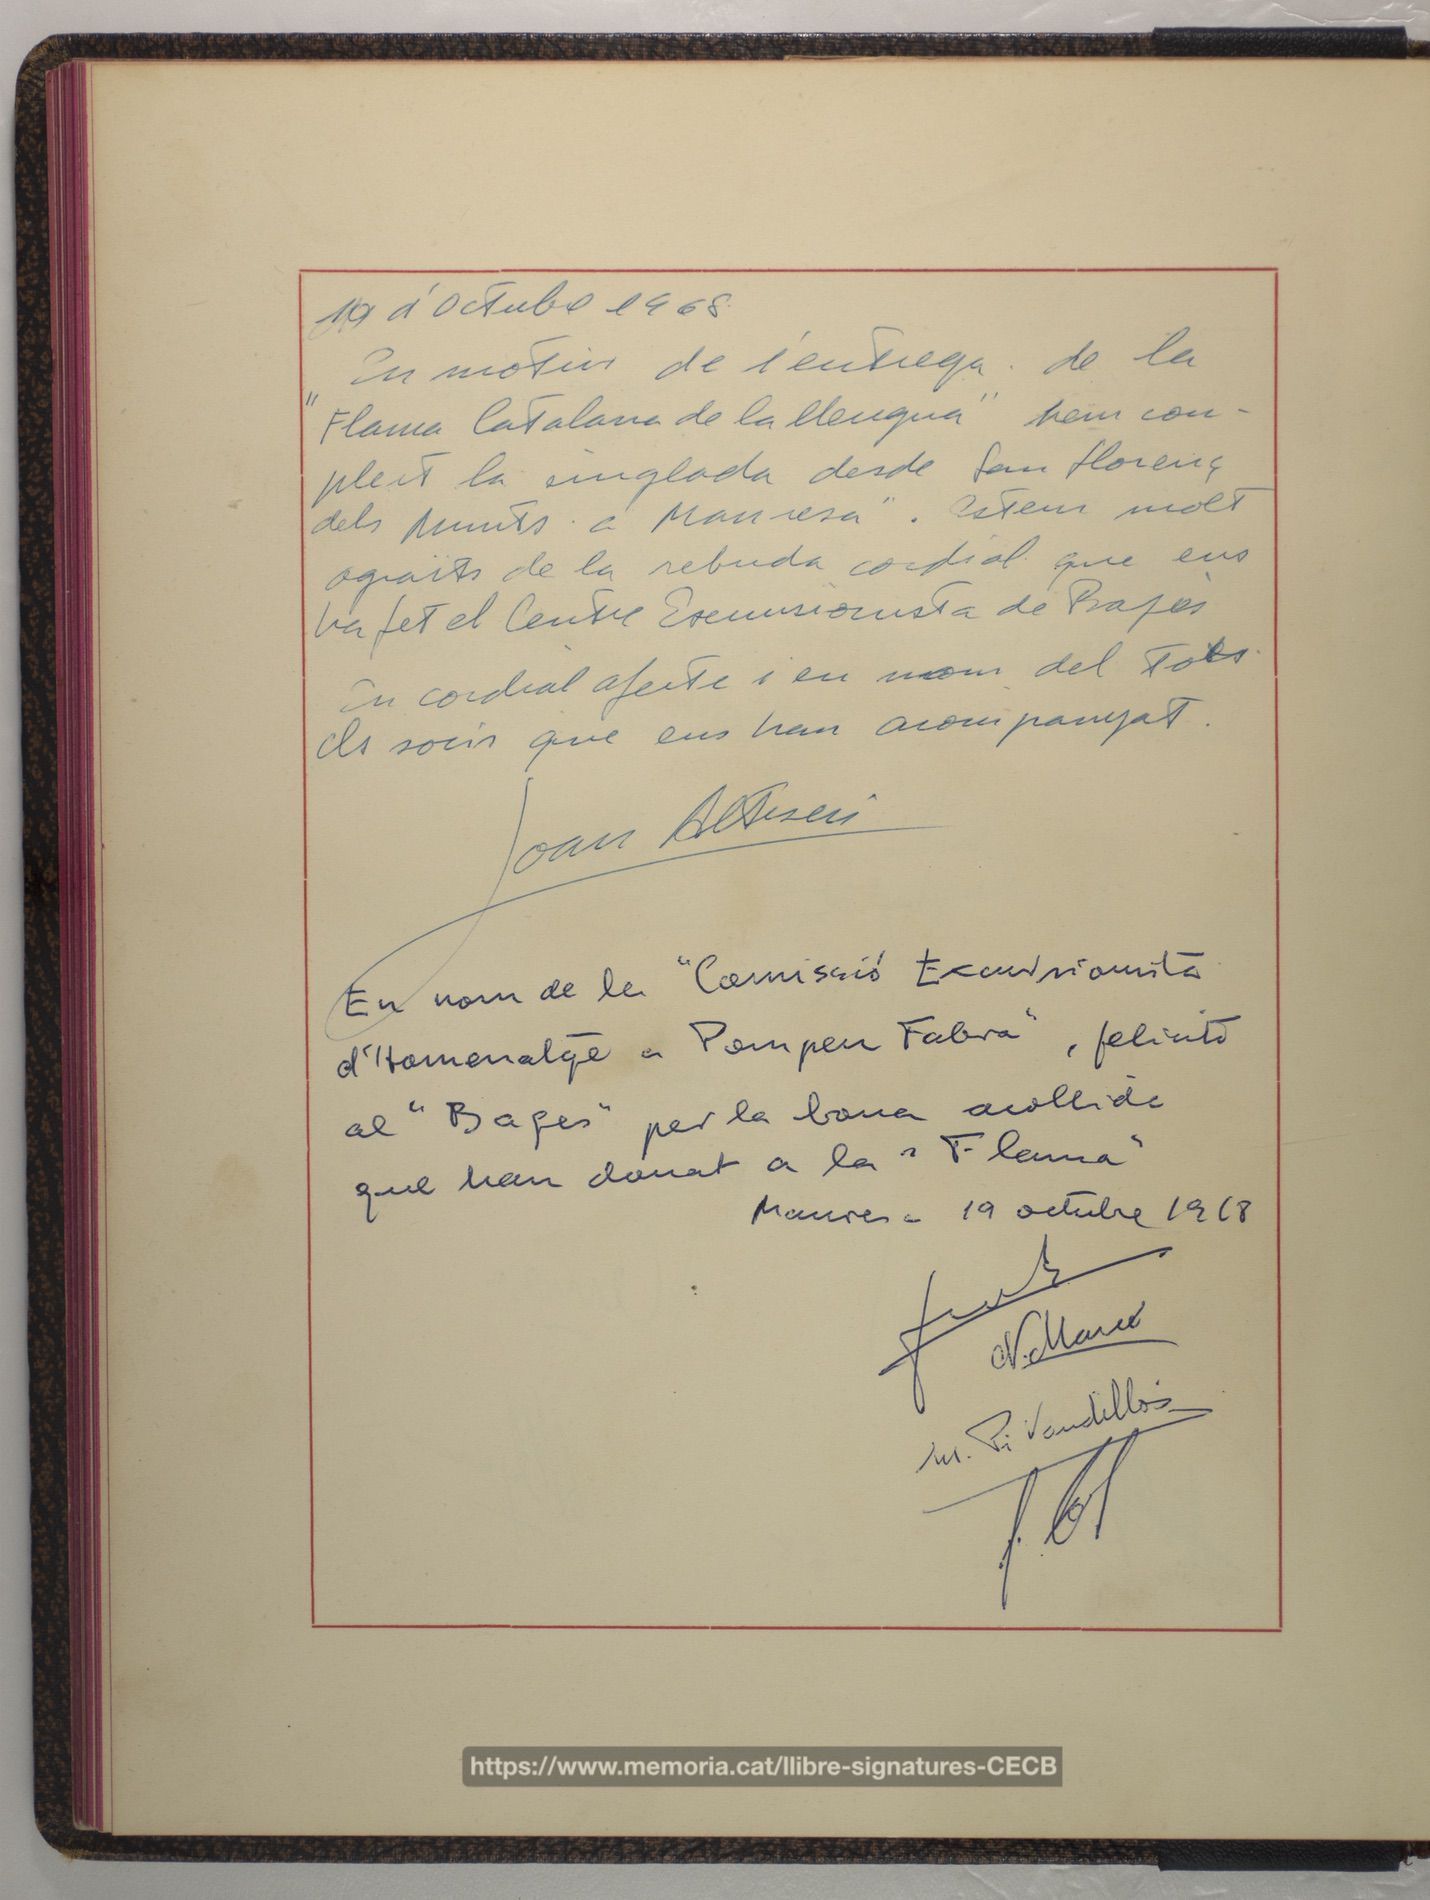 19 d'Octubre 1968.
En motiu de l'entrega. de la
"Flama Catalana de la llengua" hem com-
plert la singlada desde San Llorenç
dels Munts. a Manresa". Estem molt
agraïts de la rebuda cordial que ens
ha fet el Centre Excursionista de Bages
En cordial afecte i en nom del tots
els socis que ens han acompanyat.
Joan Altisen
En nom de la "Comissió Excursionista
d'Homenatge a Pompeu Fabra", felicito
al "Bages" per la bona acollida
que han donat a la "Flama"
Manresa 19 octubre 1968
N. Marcé
M. Pi Vandillós
https://www.memoria.cat/llibre-signatures-CECB